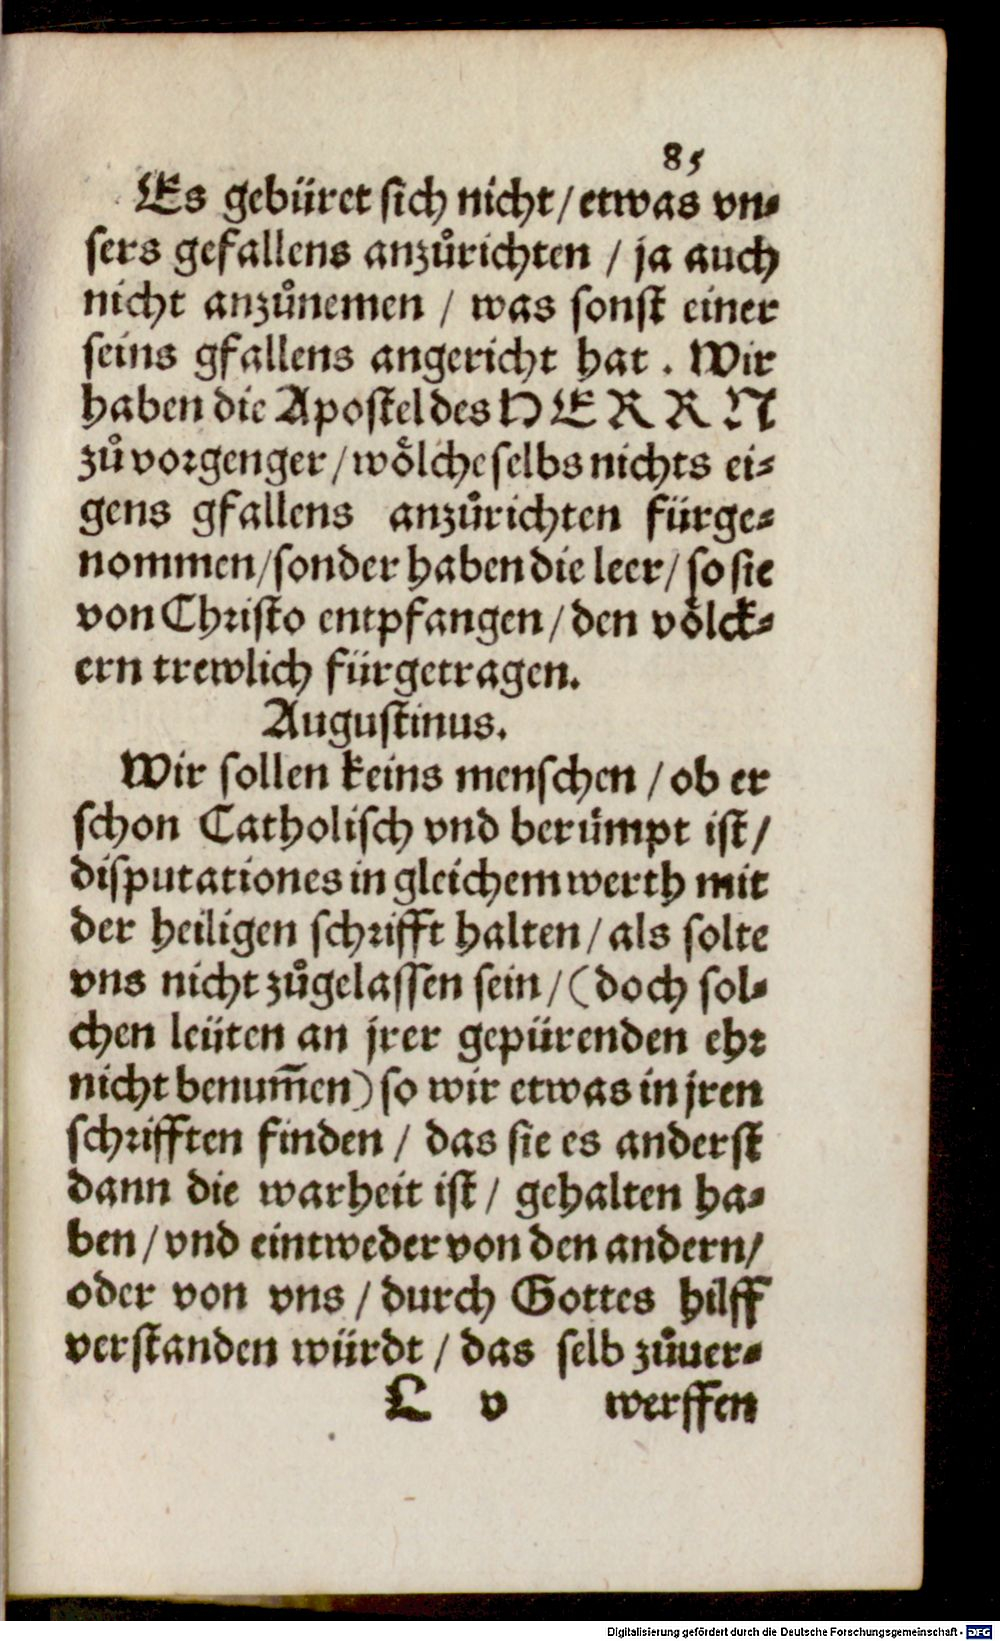 85
Es gebüret sich nicht / etwas vn⸗
sers gefallens anzůrichten / ja auch
nicht anzůnemen / was sonst einer
seins gfallens angericht hat . Wir
haben die Apostel des HERRN
zů vorgenger / wölche selbs nichts ei⸗
gens gfallens anzůrichten fürge⸗
nommen / sonder haben die leer / so sie
von Christo entpfangen / den völck⸗
ern trewlich fürgetragen.
Augustinus.
Wir sollen keins menschen / ob er
schon Catholisch vnd berümpt ist /
disputationes in gleichem werth mit
der heiligen schrifft halten / als solte
vns nicht zůgelassen sein / (doch sol⸗
chen leüten an jrer gepürenden ehr
nicht benum̄en) so wir etwas in jren
schrifften finden / das sie es anderst
dann die warheit ist / gehalten ha⸗
ben / vnd eintweder von den andern /
oder von vns / durch Gottes hilff
verstanden würdt / das selb zůuer⸗
L v werffen
Digitalisierung gefördert durch die Deutsche Forschungsgemeinschaft - DFG